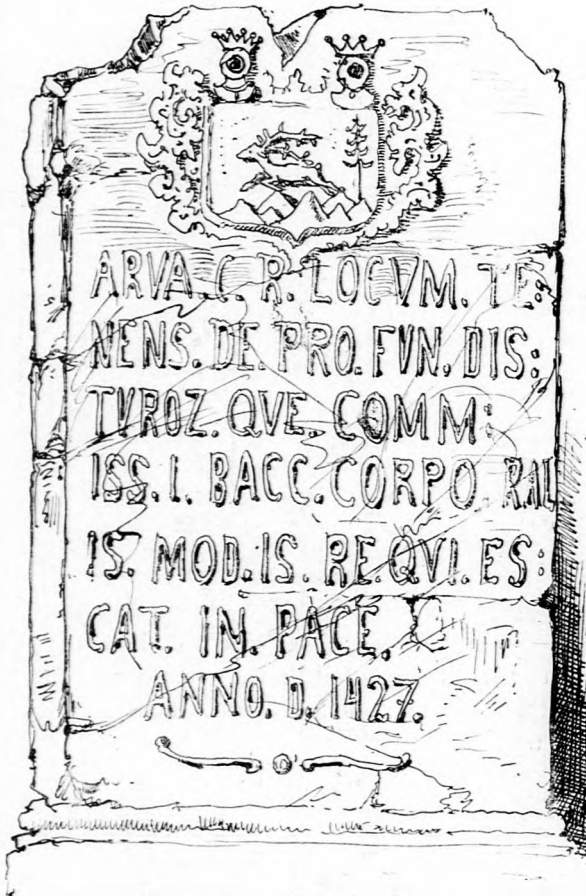 ARVA. C. R. LOCVM. TE:
NENS. DE. PRO. FVN. DIS:
TVROZ. QVE. COMM:
ISS. I. BACC. CORPO RAL
IS. MOD. IS. RE. QVI. ES:
CAT. IN. PACE.
ANNO. D. 1427.